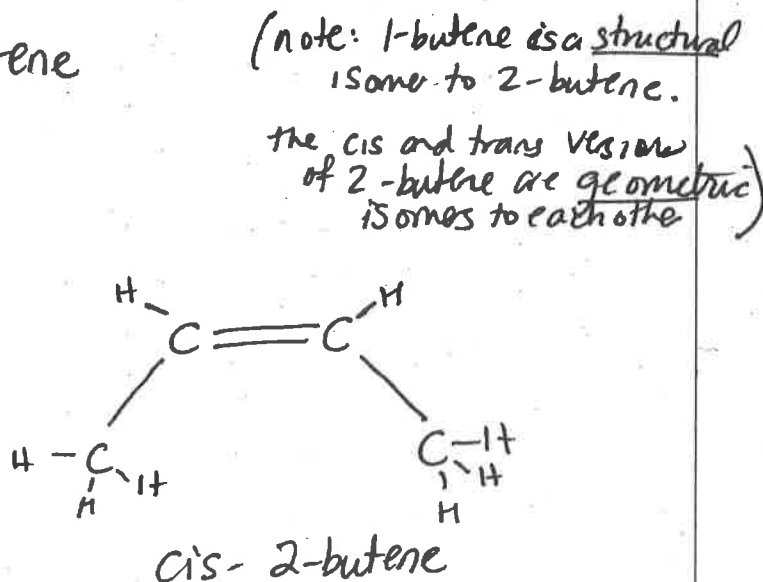 -ene
(note: 1-butene is a structural
isomer to 2-butene.
the cis and trans versions
of 2-butene are geometric)
isomes to eachothe
H H
C C
H - C H C - H
H H
H
cis- 2-butene